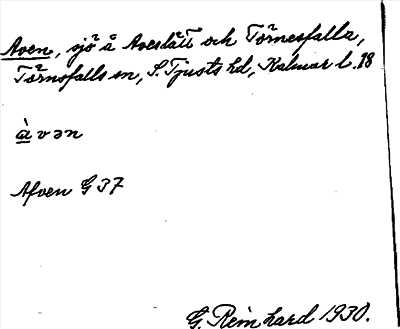 Aven, sjö å Aveslätt och Törnesfalla,
Törnsfalls sn, S. Tjusts hd, Kalmar l. 18
àvən
Afven G 37
G. Reinhard 1930.